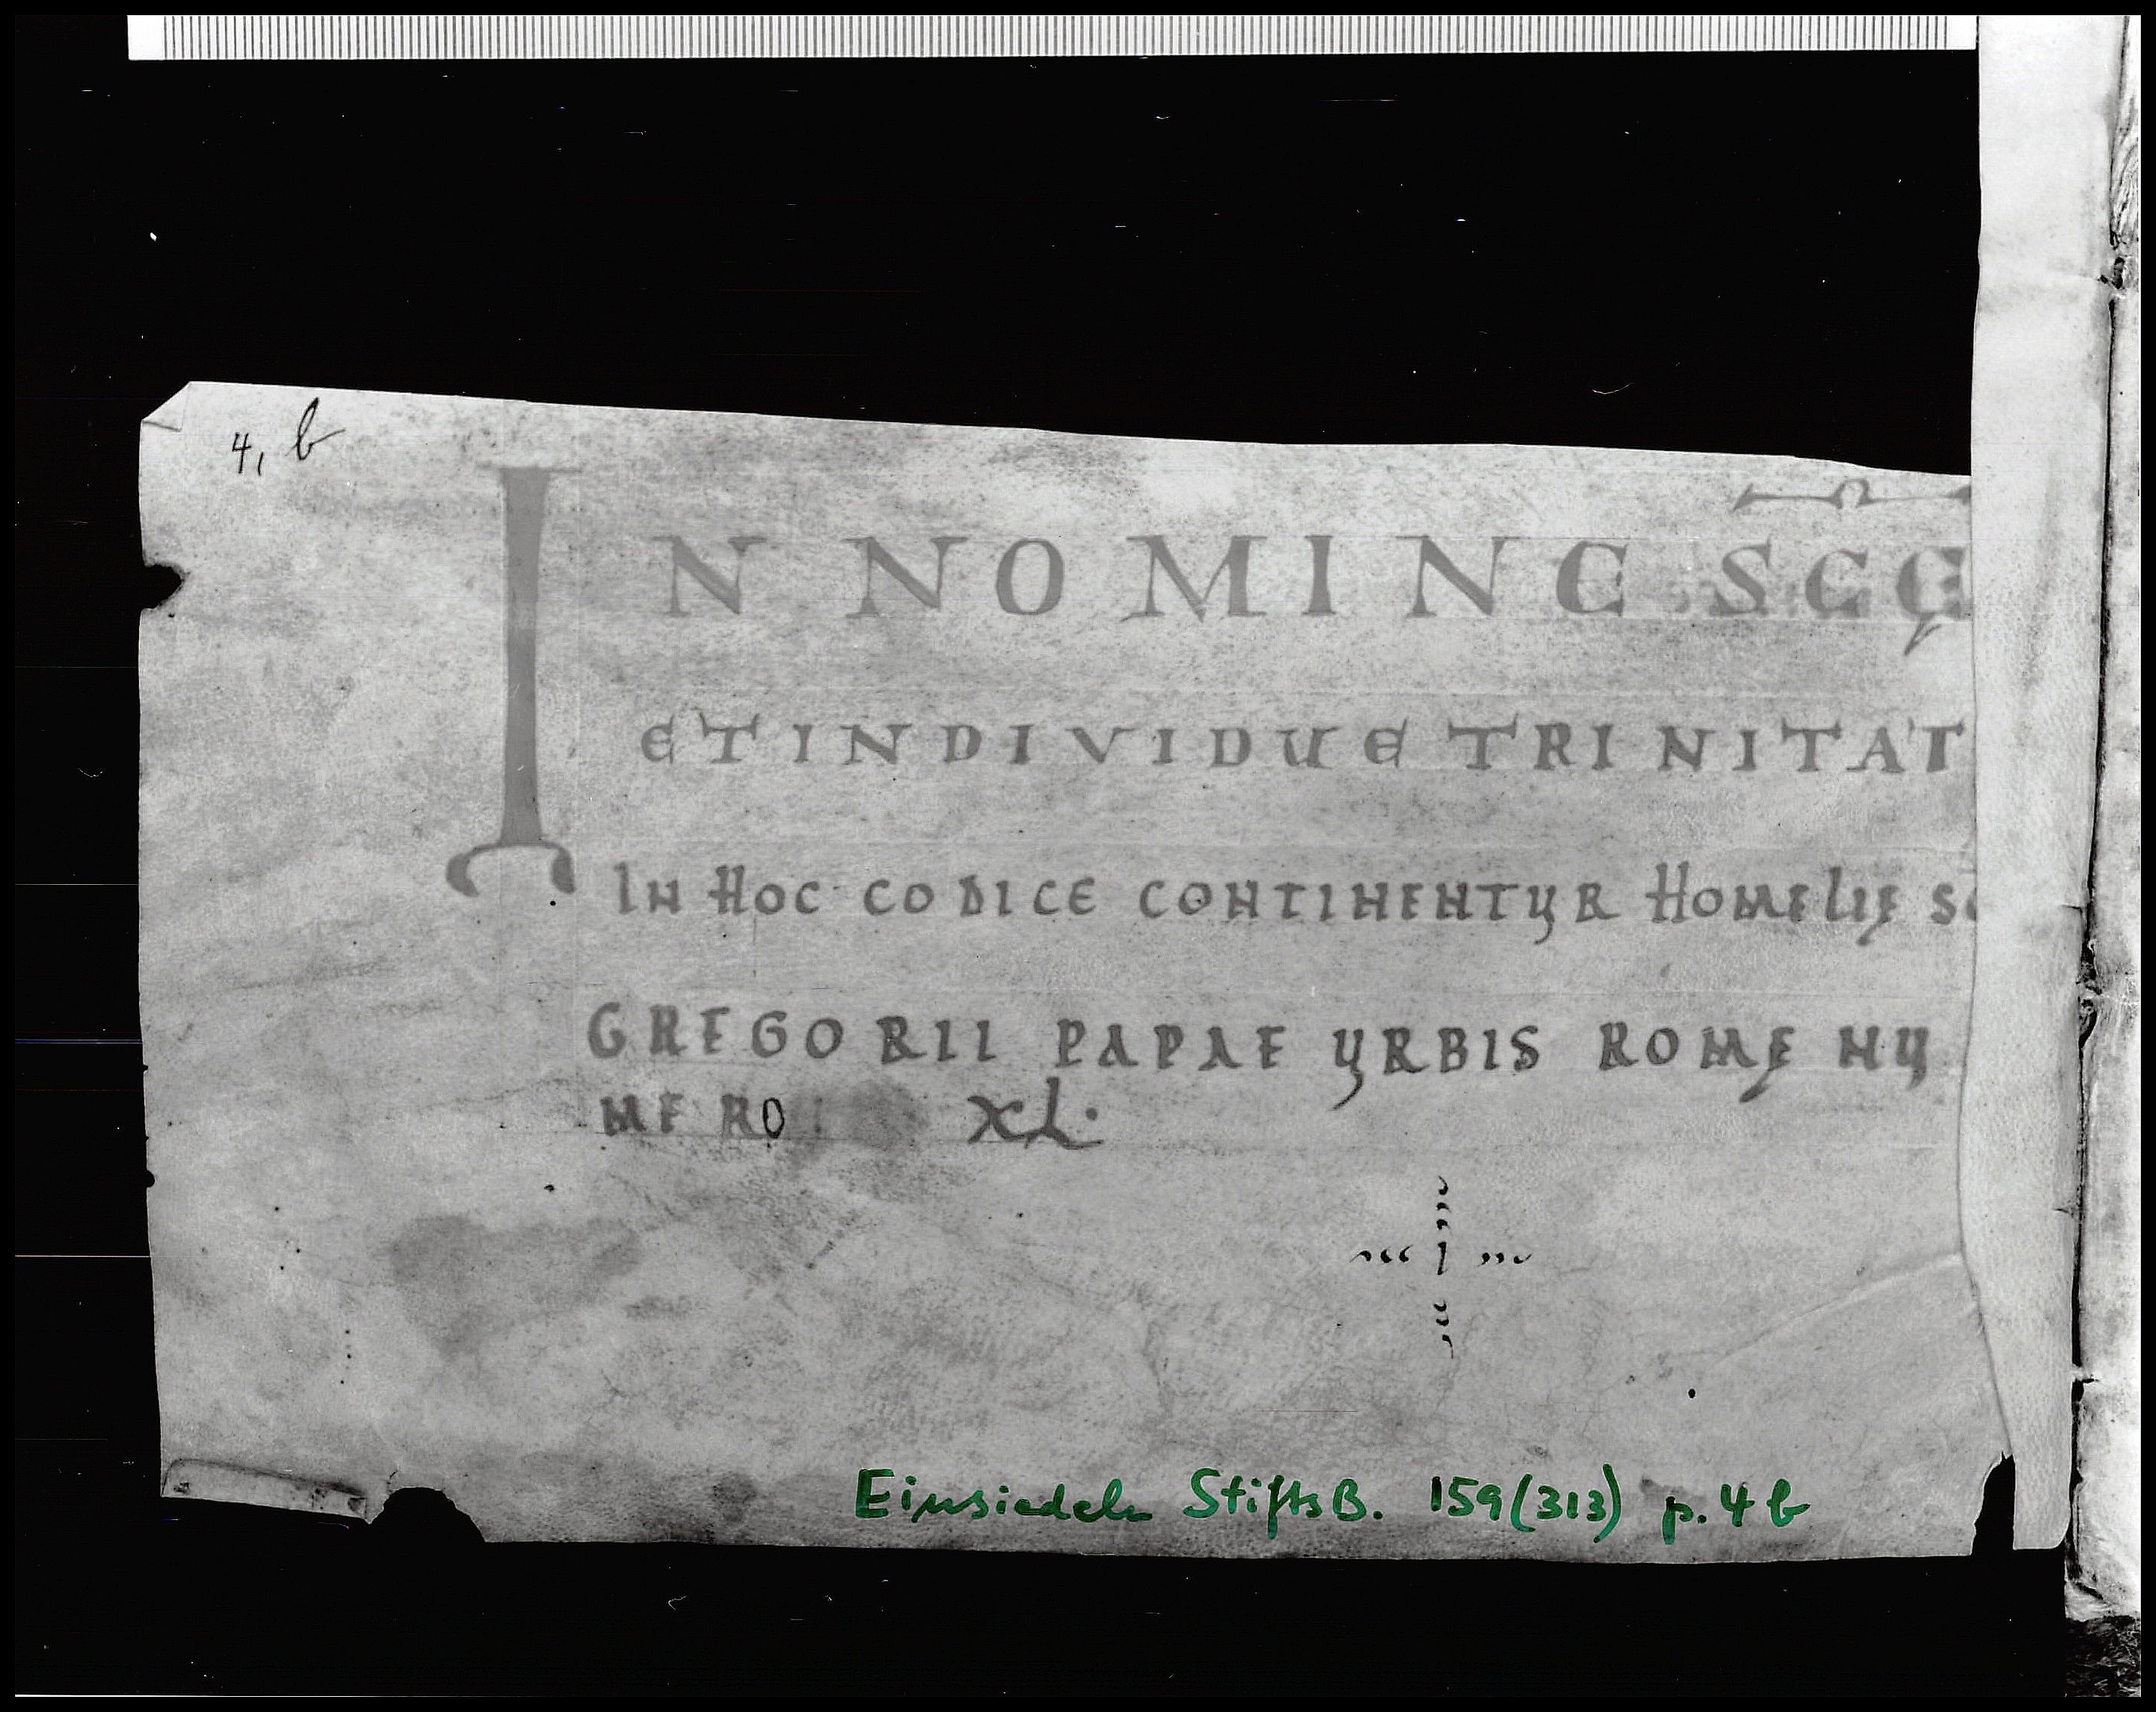 4, b
IN NOMINE SCĘ
ET INDIVIDUE TRINITAT
IN HOC CODICE CONTINENTUR HOMELIĘ SC
GREGORII PAPAE URBIS ROMĘ NU
MERO XL·
Einsiedeln StiftsB. 159(313) p. 4 b